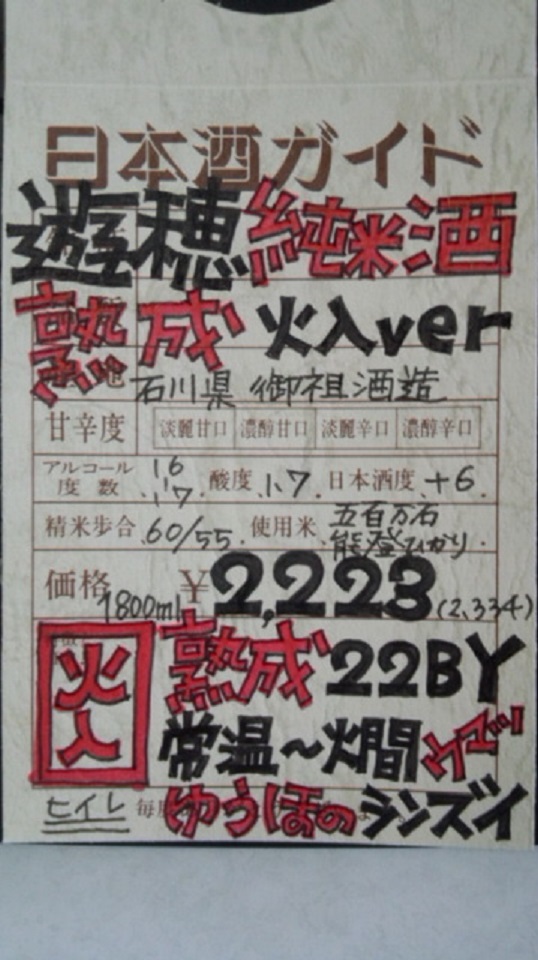 日本酒ガイド
遊穂 純米酒
熟成 火入ver
石川県 御祖酒造
甘辛度 淡麗甘口 濃醇甘口 淡麗辛口 濃醇辛口
アルコール度数 16.17. 酸度 1.7 日本酒度 +6.
精米歩合 60/55 使用米 五百万石 能登ひかり.
価格 ¥2,223(2,334)
1800ml
火入 熟成 22BY
常温～燗 ウマッ
ヒイレ ゆうほのランズイ